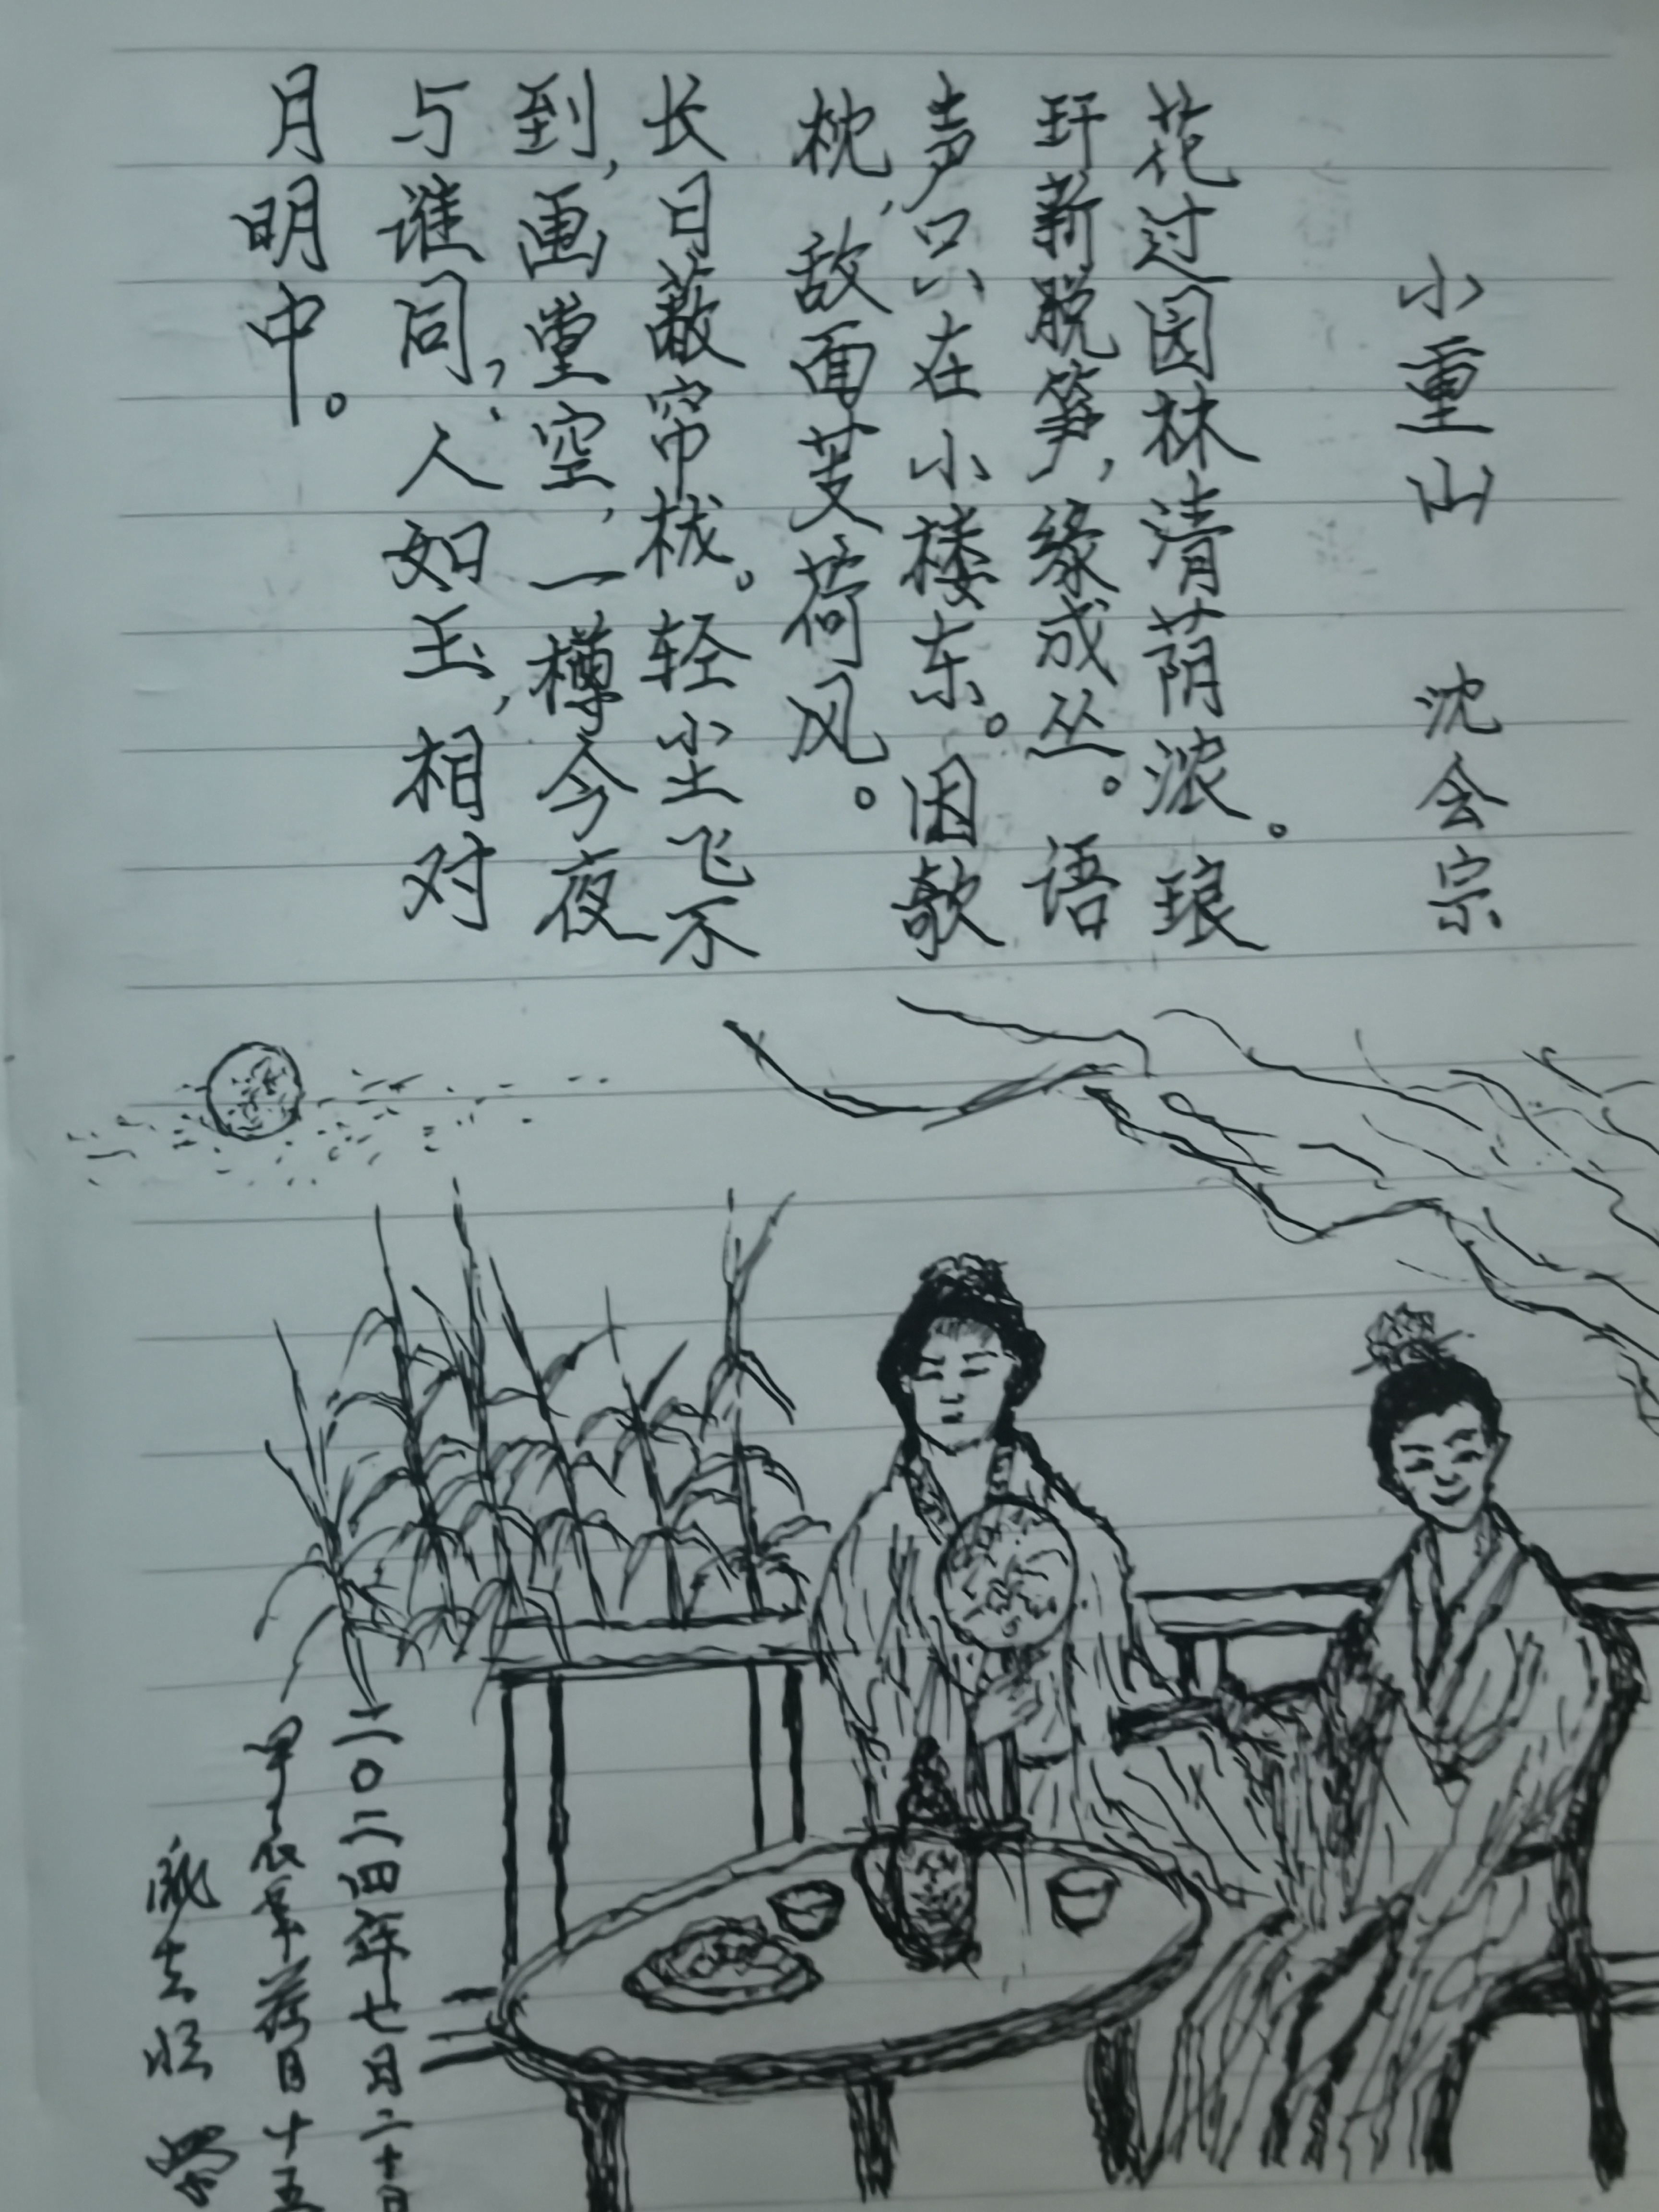 小重山 沈会宗
花过园林清荫浓。琅
玕新脱笋，缘成丛。语
声只在小楼东。因欹
枕，敌面芰荷风。
长日蔽帘栊。轻尘飞不
到，画堂空，一樽今夜
与谁同？人如玉，相对
月明中。
二〇二四年七月二十日
甲辰年荷月十五